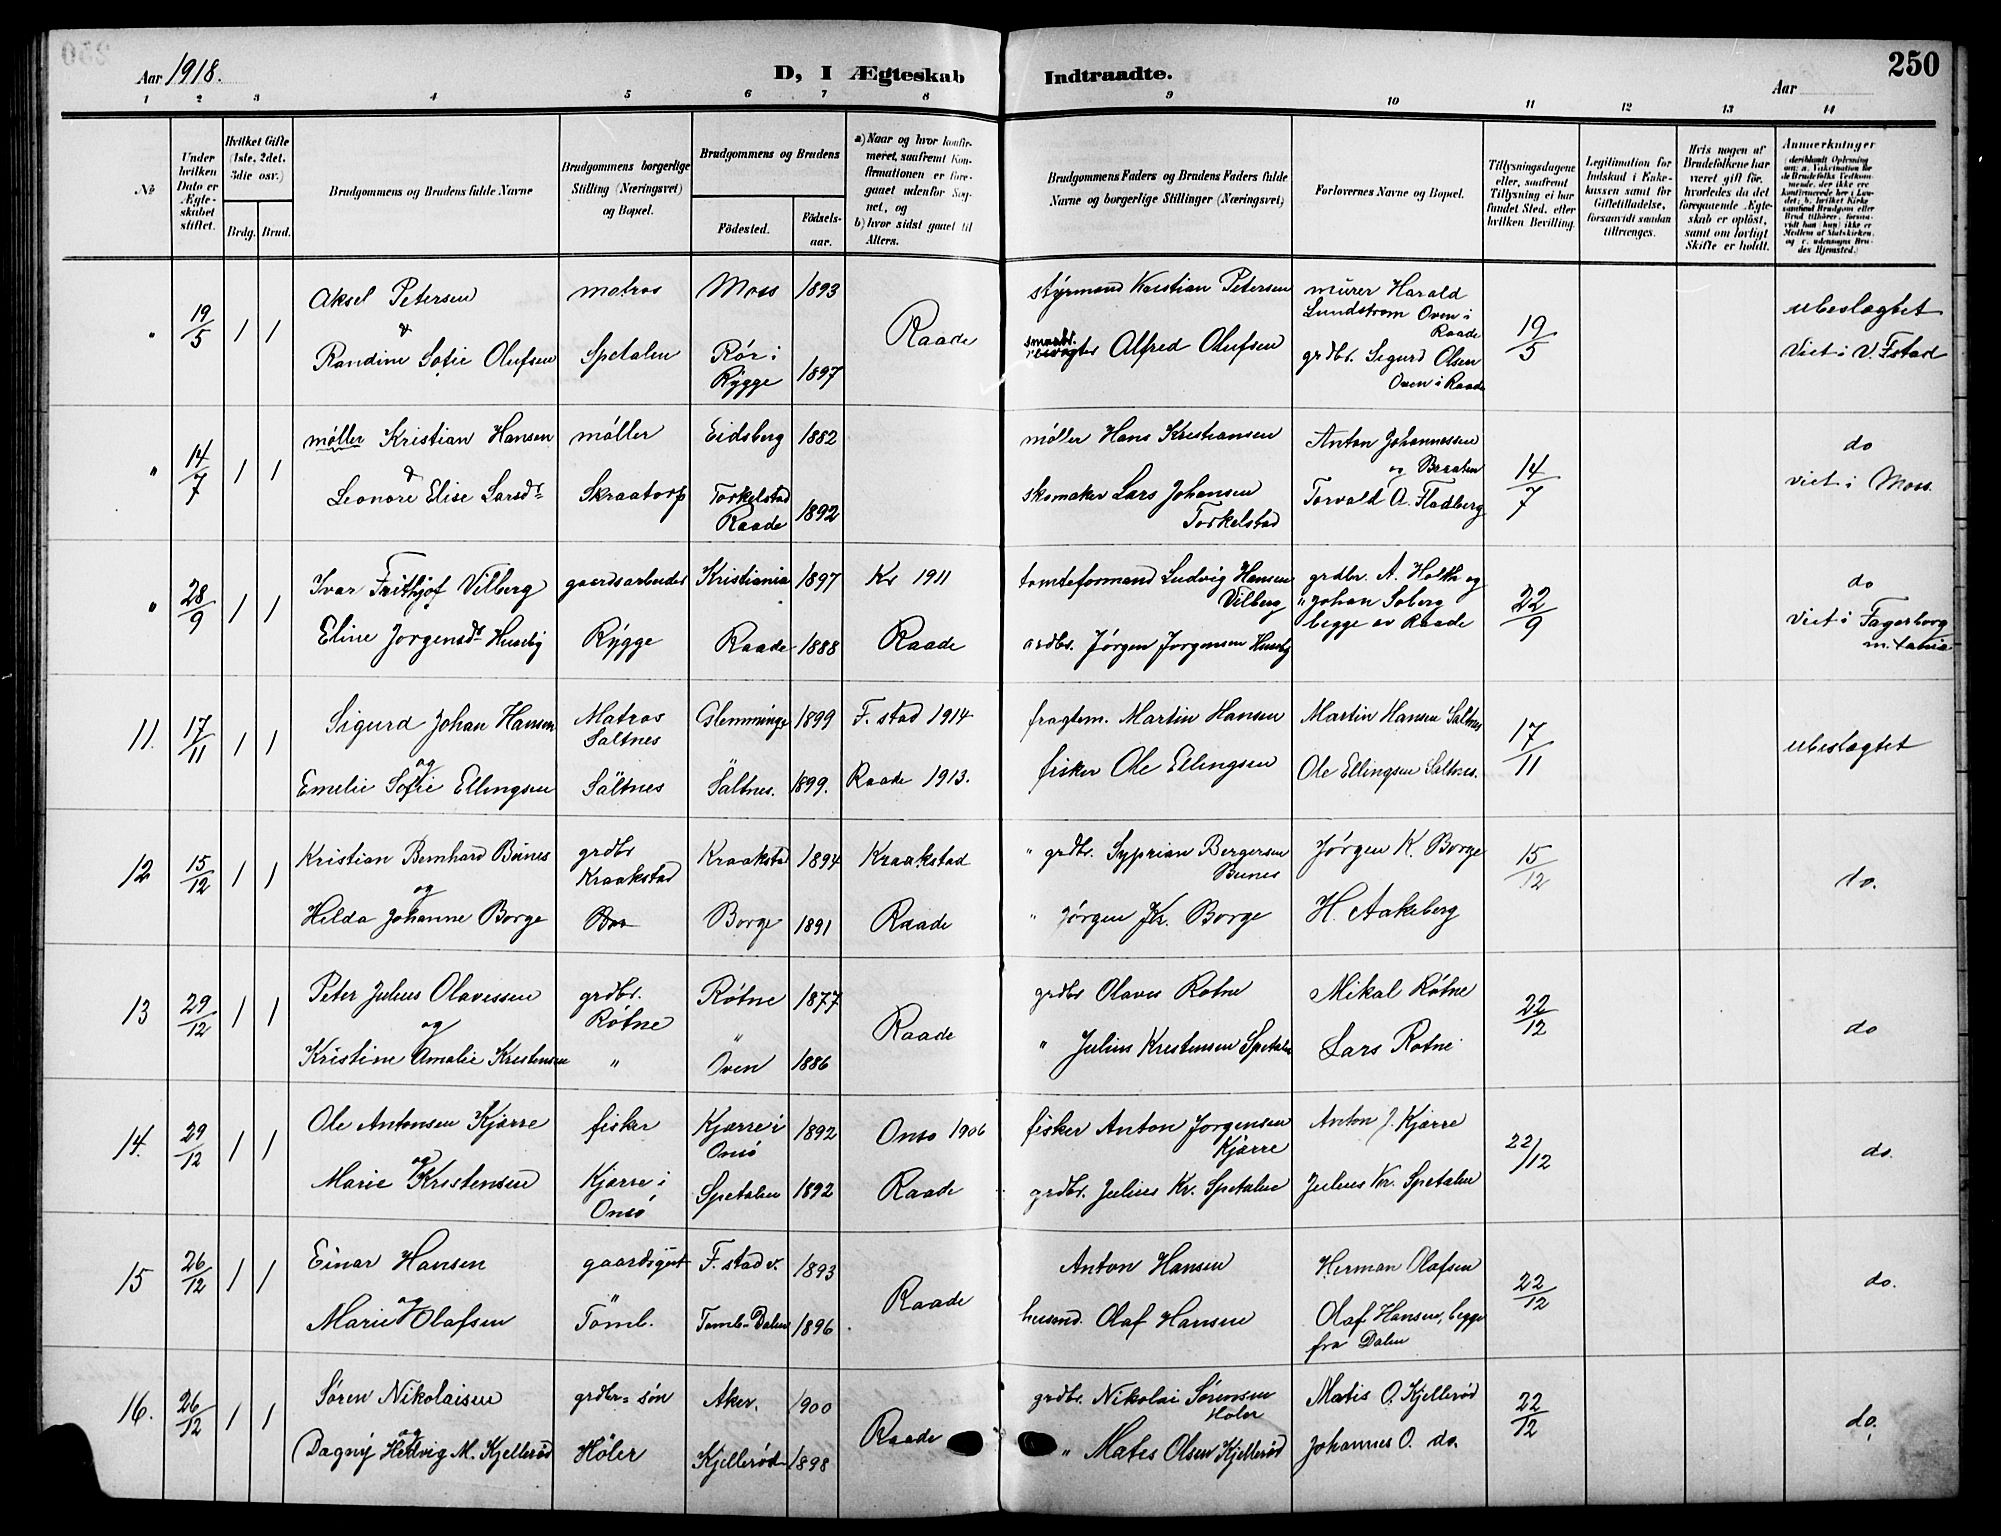 250
Aar 1918.
D, I Ægteskab Indtraadte.
Aar
1 2 3 4 5 6 7 8 9 10 11 12 13 14
No
Under hvilken Dato er Ægteskabet stiftet.
Hvilket Gifte (1ste, 2det, 3die osv.)
Brdg. Brud.
Brudgommens og Brudens fulde Navne
Brudgommens borgerlige Stilling (Næringsvei) og Bopæl.
Brudgommens og Brudens
Födested.
Födselsaar.
a) Naar og hvor konfirmeret, saafremt Konfirmationen er foregaaet udenfor Sognet, og
b) hvor sidst gaaet til Alters.
Brudgommens Faders og Brudens Faders fulde Navne og borgerlige Stillinger (Næringsvei)
Forlovernes Navne og Bopæl.
Tillysningsdagene eller, saafremt Tillysning ei har fundet Sted, efter hvilken Bevilling.
Legitimation for Indskud i Enkekassen samt for Giftetilladelse, forsaavidt saadan tiltrænges.
Hvis nogen af Brudefolkene har været gift för, hvorledes da det foregaaende Ægteskab er oplöst, samt om lovligt Skifte er holdt.
Anmerkninger
" 19/5 1 1 Aksel Petersen matros Moss 1893 styrmand Kristian Petersen murer Harald Lundstrøm Oven i Raade 19/5 ubeslægtet
& Randine Sofie Olufsen Spetalen Rör i Rygge 1897 Raade Alfred Olufsen grdbr. Sigurd Olsen Oven i Raade Viet i V. Fstad
" 14/7 1 1 møller Kristian Hansen møller Eidsberg 1882 møller Hans Kristiansen Anton Johannessen og Braaten 14/7 do
& Leonore Elise Larsdr Skraatorp Torkelstad Raade 1892 skomaker Lars Johansen Torkelstad Torvald A. Fladberg viet i Moss.
" 28/9 1 1 Ivar Frithjof Vilberg gaardsarbeider Kristiania 1897 Kr 1911 tomteformand Ludvig Hansen Vilberg grdbr. A. Holth og 22/9 do
Eline Jørgensdr Huseby Rygge Raade 1888 Raade grdbr. Jørgen Jørgensen Huseby " Johan Soberg begge av Raade Viet i Fagerborg
11. 17/11 1 1 Sigurd Johan Hansen Matros Saltnes Glemminge 1899 F. stad 1914 fragtem. Martin Hansen Martin Hansen Saltnes 17/11
og Emelie Sofie Ellingsen Saltnes Saltnes. 1899. Raade 1913. fisker Ole Ellingsen Ole Ellingsen Saltnes. ubeslægtet
12 15/12 1 1 Kristian Bernhard Bunes grdbr Kraakstad Kraakstad 1894 Kraakstad " grdbr. Syprian Bergersen Bunes Jørgen K. Borge 15/12
og Hilda Johanne Borge Borge 1891 Raade " Jørgen Kr. Borge H. Aakeberg do.
13 29/12 1 1 Peter Julius Olavessen grdbr. Røtne Røtne 1877 grdbr Olaves Rotne Mikal Røtne 22/12
og Kristine Amalie Kristensen " Oven 1886 Raade " Julius Kristensen Spetalen Lars Rotne do
14. 29/12 1 1 Ole Antonsen Kjærre fisker Kjærre i Onsø 1892 Onso 1906 fisker Anton Jorgensen Kjærre Anton J. Kjærre 22/12
og Marie Kristensen Kjærre i Onsø Spetalen 1892 Raade grdbr. Julius Kr. Spetalen Julius Kr. Spetalen do.
15 26/12 1 1 Einar Hansen gaardsgut F. stad v. 1893 Anton Hansen Herman Olafsen 22/12
og Marie Olafsen Tomb. Tomb-Dalen 1896 Raade husmd. Olaf Hansen Olaf Hansen, begge fra Dalen do.
16. 26/12 1 1 Søren Nikolaisen grdbr-søn Aker. 1900 grdbr. Nikolai Sørensen Høler Matis O. Kjellerød 22/12
og Dagny Hedvig M. Kjellerød Høler Kjellerød 1898 Raade " Mates Olsen Kjellerød Johannes O. do. do.